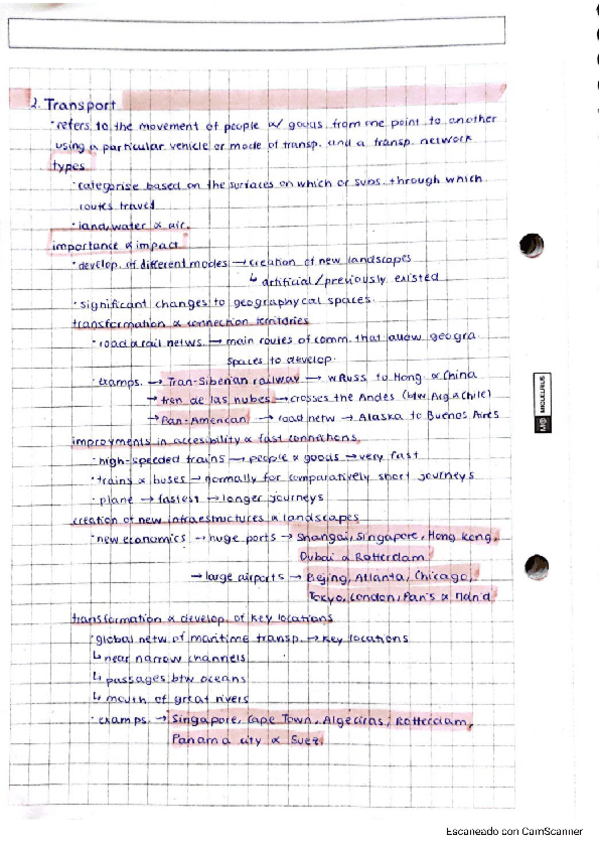 2. Transport
· refers to the movement of people & goods from one point to another
using a particular vehicle or mode of transp. and a transp. network
types
· categorise based on the surfaces on which or subs. through which
routes travel
· land, water & air.
importance & impact
· develop. of different modes → creation of new landscapes
↳ artificial/previously existed
· significant changes to geographycal spaces.
transformation & connection territories
· road & rail netws. → main routes of comm. that allow geogra.
spaces to develop.
· examps. → Trans-Siberian railway → wRuss to Mong & China
→ tren de las nubes → crosses the Andes (btw Arg & Chile)
→ Pan-American → road netw → Alaska to Buenos Aires
improvments in accesibility & fast connections,
· high-speeded trains → people & goods → very fast
· trains & buses → normally for comparatively short journeys
· plane → fastest → longer journeys
creation of new infraestructures & landscapes
· new economics → huge ports → Shangai, Singapore, Hong Kong,
Dubai & Rotterdam
→ large airports → Bejing, Atlanta, Chicago,
Tokyo, London, Paris & Madrid
transformation & develop. of key locations
· global netw. of maritime transp. → key locations
↳ near narrow channels
↳ passages btw oceans
↳ mouth of great rivers
· examps. → Singapore, Cape Town, Algeciras, Rotterdam,
Panama city & Suez
MIQUELRIUS
Escaneado con CamScanner